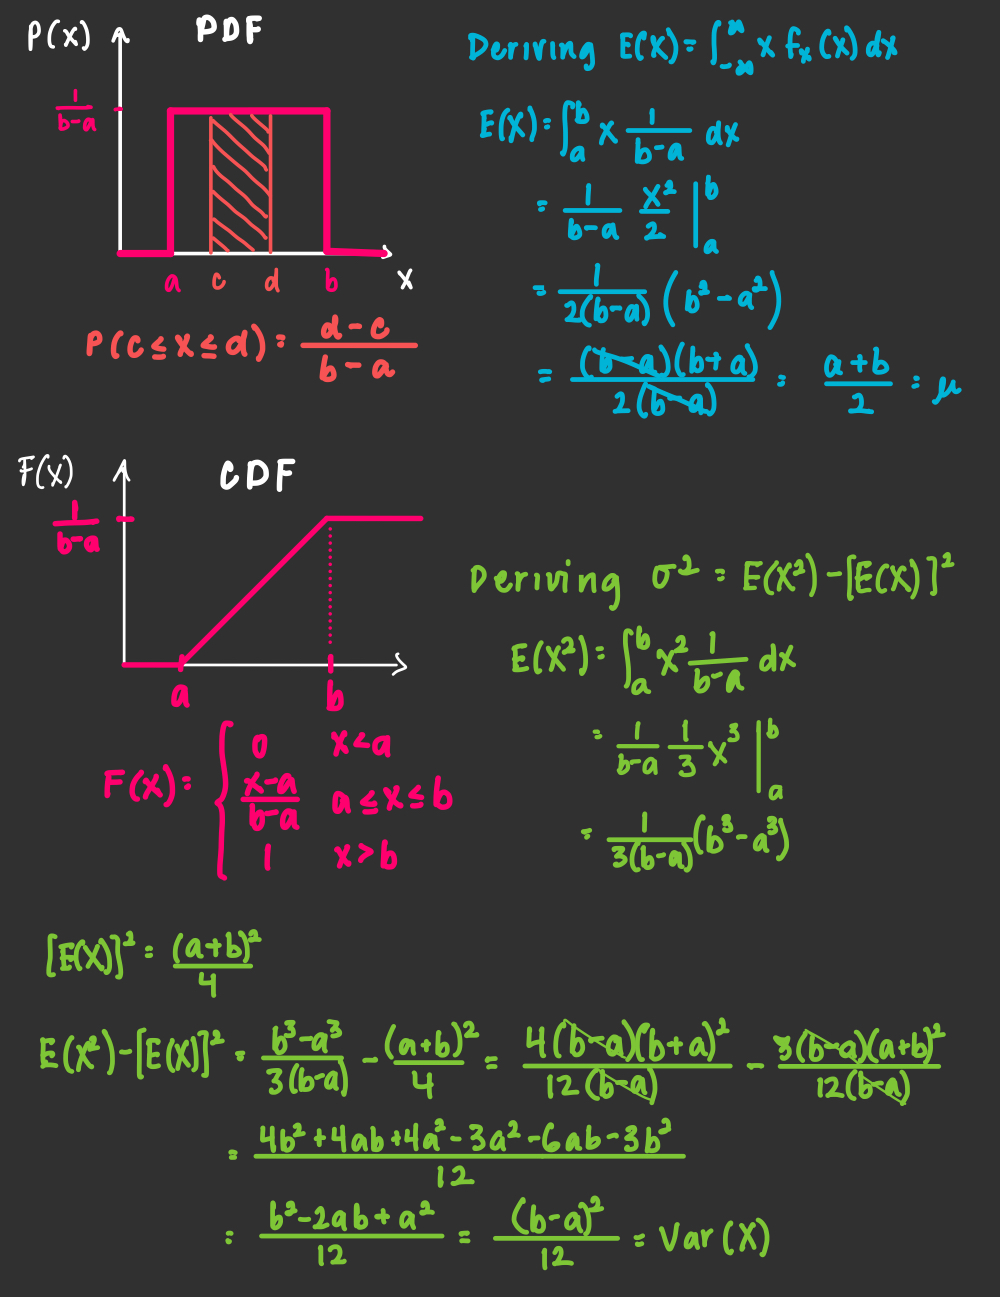 P(x)
PDF
1/(b-a)
a c d b x
P(c ≤ x ≤ d) = (d-c)/(b-a)
Deriving E(X) = ∫_{-∞}^{∞} x f_x(x) dx
E(X) = ∫_a^b x 1/(b-a) dx
= 1/(b-a) x²/2 |_a^b
= 1/(2(b-a)) (b² - a²)
= (b-a)(b+a)/(2(b-a)) = (a+b)/2 = μ
F(x)
CDF
1/(b-a)
a b
F(x) = {
0 x < a
(x-a)/(b-a) a ≤ x ≤ b
1 x > b
Deriving σ² = E(X²) - [E(X)]²
E(X²) = ∫_a^b x² 1/(b-a) dx
= 1/(b-a) 1/3 x³ |_a^b
= 1/(3(b-a)) (b³ - a³)
[E(X)]² = (a+b)²/4
E(X²) - [E(X)]² = (b³-a³)/(3(b-a)) - (a+b)²/4 = 4(b-a)(b+a)²/(12(b-a)) - 3(b-a)(a+b)²/(12(b-a))
= (4b² + 4ab + 4a² - 3a² - 6ab - 3b²)/12
= (b² - 2ab + a²)/12 = (b-a)²/12 = Var(X)